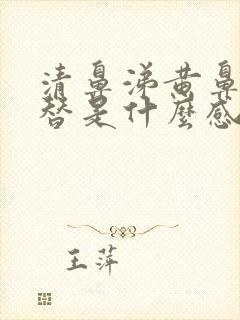 清鼻涕黄鼻
替是什麼感
王萍